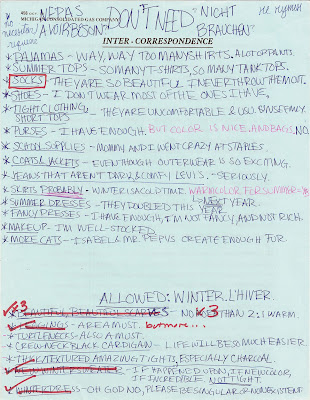 *
not
necessary
require
NE PAS
AVOIR BESOIN
DON'T NEED
NICHT
BRAUCHEN
MICHIGAN CONSOLIDATED GAS COMPANY
INTER - CORRESPONDENCE
* PAJAMAS - WAY, WAY TOO MANY SHIRTS. A LOT OF PANTS.
* SUMMER TOPS - SO MANY T-SHIRTS, SO MANY TANK TOPS.
* SOCKS - THEY ARE SO BEAUTIFUL I NEVER THROW THEM OUT.
* SHOES - I DON'T WEAR MOST OF THE ONES I HAVE.
* TIGHT CLOTHING/ SHORT TOPS - THEY ARE UNCOMFORTABLE & USU.
* PURSES - I HAVE ENOUGH. BUT COLOR IS NICE. AND BAGS. NO.
* SCHOOL SUPPLIES - MOMMY AND I WENT CRAZY AT STAPLES.
* COATS & JACKETS - EVEN THOUGH OUTERWEAR IS SO EXCITING.
* JEANS THAT AREN'T DARK & COMFY LEVI'S. - SERIOUSLY.
* SKIRTS PROBABLY - WINTER IS A COLD TIME. WARM COLOR FOR SUMMER -
* SUMMER DRESSES - THEY DOUBLED THIS YEAR.
NEXT YEAR.
* FANCY DRESSES - I HAVE ENOUGH, I'M NOT FANCY, AND NOT RICH.
* MAKEUP - I'M WELL-STOCKED
* MORE CATS - ISABEL & MR. PEPYS CREATE ENOUGH FUR.
ALLOWED: WINTER. L'HIVER.
3
* BEAUTIFUL, BEAUTIFUL SCARVES - NO THAN 2: 1 WARM.
3
* LEGGINGS - ARE A MUST. but more...
* TURTLENECKS - ALSO A MUST.
* CREW-NECK BLACK CARDIGAN - LIFE WILL BE SO MUCH EASIER.
* THICK/TEXTURED AMAZING TIGHTS, ESPECIALLY CHARCOAL.
* WINTER SWEATER - IF HAPPENED UPON, IF NEW COLOR,
IF INCREDIBLE. NOT TIGHT.
* WINTER DRESS - OH GOD NO, PLEASE BE SINGULAR OR NONEXISTENT